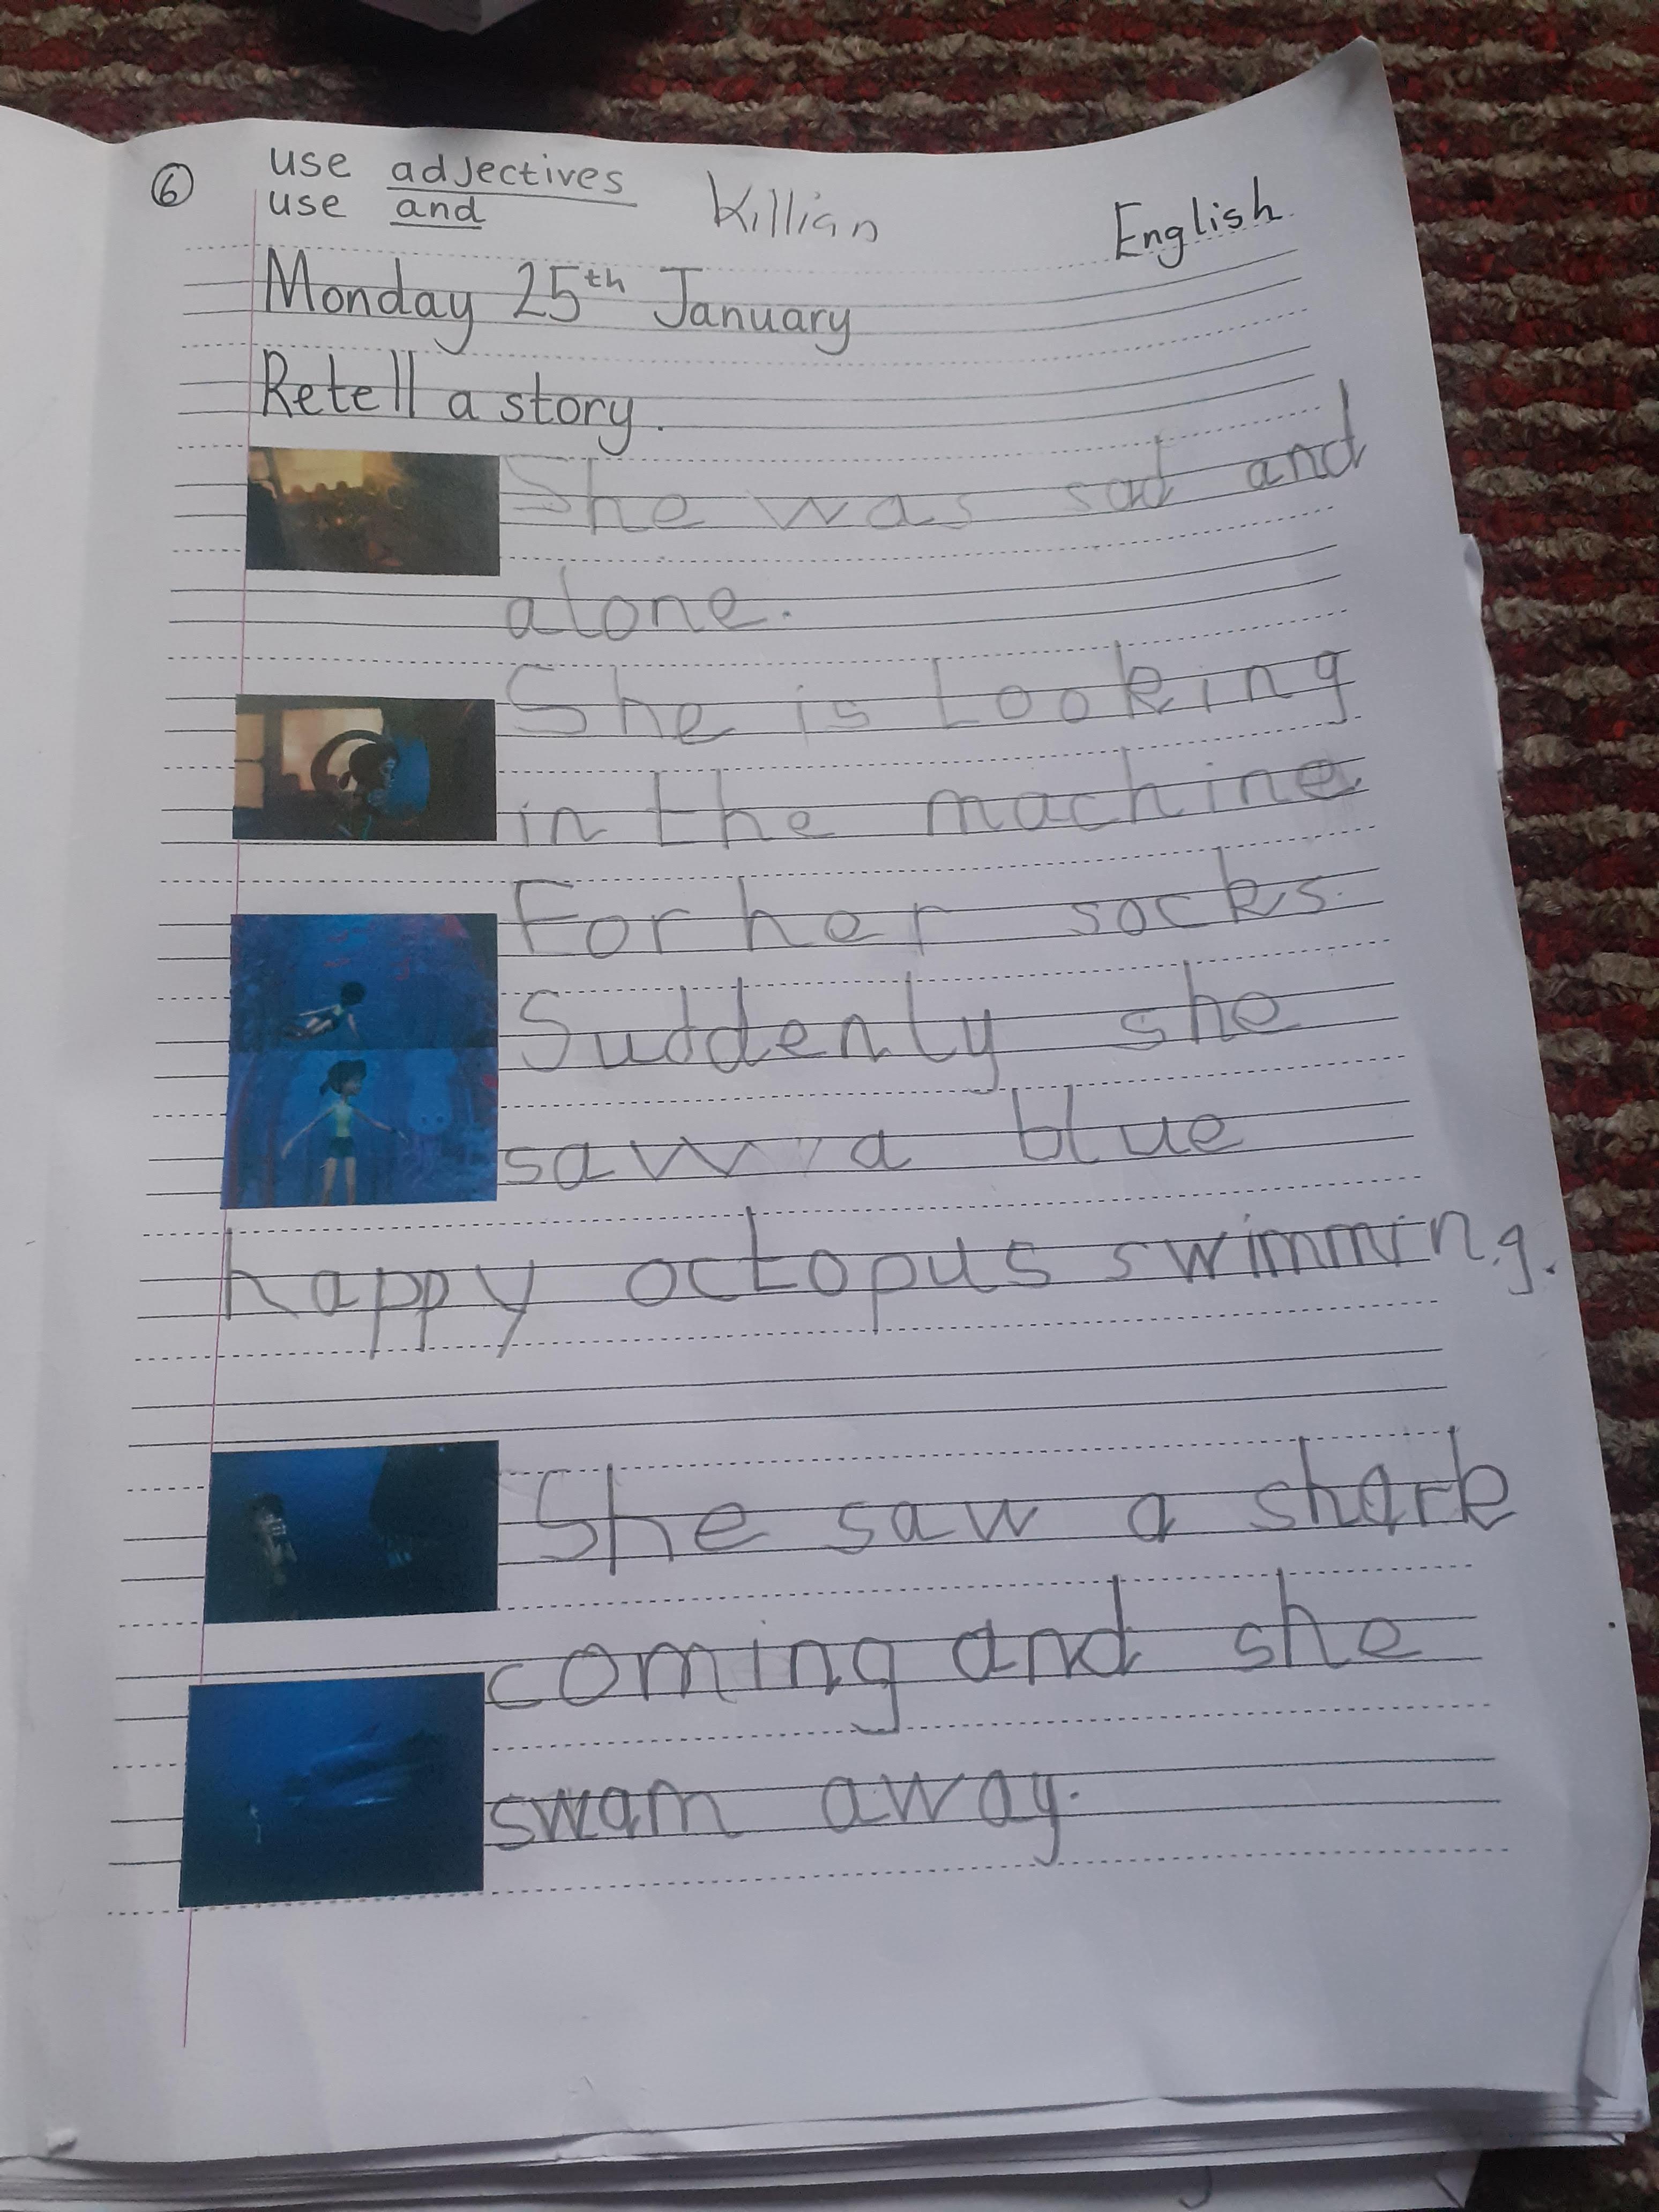 6
use adjectives
use and
Killian
English
Monday 25th January
Retell a story.
She was sad and
alone.
She is Looking
in the machine
For her socks.
Suddenly she
saw a blue
happy octopus swimming.
She saw a shark
coming and she
swam away.